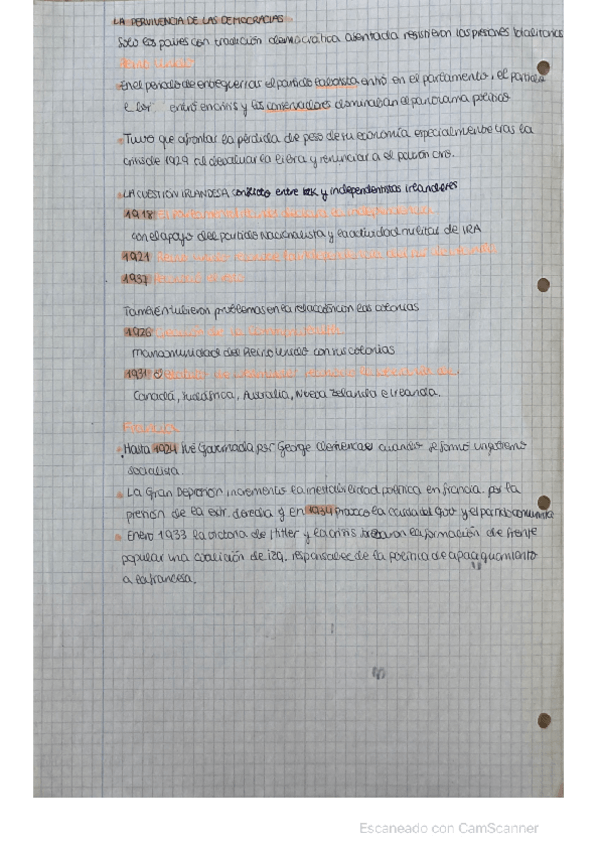 LA PERVIVENCIA DE LAS DEMOCRACIAS
Solo los países con tradición democrática asentada resistieron las presiones totalitarias
Reino Unido
En el periodo de entreguerras el partido laborista entró en el parlamento, el partido
entró en crisis y los conservadores dominaban el panorama político
Tuvo que afrontar la pérdida de peso de su economía especialmente tras la
crisis de 1929 al devaluar la libra y renunciar a el patrón oro.
LA CUESTION IRLANDESA conflicto entre UK y independentistas irlandeses
1918
con el apoyo del partido Nacionalista y la actividad militar de IRA
1921
1937
También tubieron problemas en la relacción con las colonias
1926
mancomunidad del Reino Unido con sus colonias
1931
Canadá, Sudáfrica, Australia, Nueva Zelanda e Irlanda.
Francia
Hasta 1924 fué gobernada por George Clemenceau cuando se formó un gobierno
socialista.
La Gran Depresion incremento la inestabilidad política en francia. por la
presion de la extr. derecha y en 1934 provoco la caida del Gov y el partido comunista
Enero 1933 la victoria de Hitler y la crisis la formación de frente
popular una coalición de izq. responsable de la política de apaciguamiento
a la francesa.
Escaneado con CamScanner